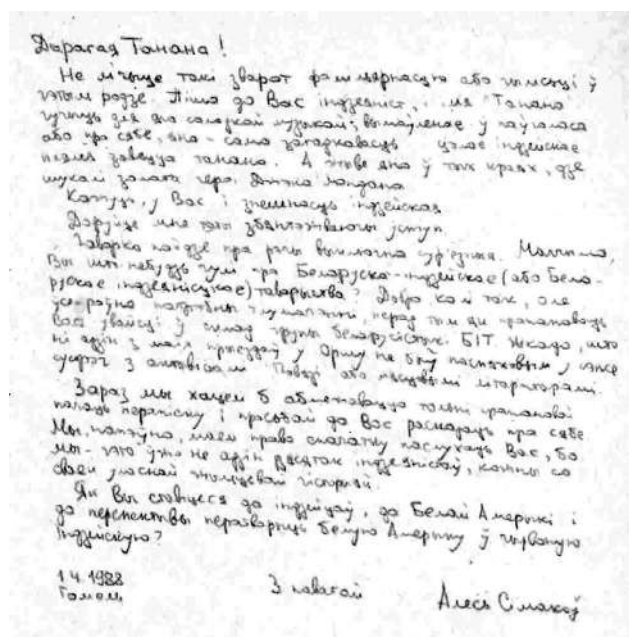 Дарагая Танана!
Не лічыце такі зварот фамільярнасцю або чымсьці ў
гэтым родзе. Піша до Вас індзеяніст, і імя "Танана"
гучыць для яго салодкай музыкай; вымаўленае ў паўголаса
або пра сябе, яно - сама загадкавасць цэлае індзейскае
племя завецца танана. А жыве яно ў тых краях, дзе
шукалі золата героі Джэка Лондана
Кажуць, у Вас і знешнасць індзейская
Даруйце мне гэты збянтэжваючы ўступ.
Гаворка пойдзе пра рэчы выключна сур'ёзныя. Магчыма,
Вы што-небудзь чулі пра Беларуска-індзейскае (або Бела-
рускае індзеянісцкае) таварыства? Добра, калі так, але
ўсё роўна патрэбны тлумачэнні, перад тым як прапаноўваць
Вам увайсці ў склад групы БІТ. Шкада, што
ні адзін з маіх прыездаў у Оршу не быў паспяховым у сэнсе
сустрэч з або мясцовымі літаратарамі.
Зараз мы хацелі б абмежавацца толькі прапановай
пачаць перапіску і просьбай до Вас расказаць пра сябе
Мы, напэўна, маем права спачатку паслухаць Вас, бо
мы - гэта ўжо не адзін дзесятак індзеяністаў, кожны са
сваёй уласнай жыццёвай гісторыяй.
Як Вы ставіцеся да індзейцаў, да Белай Амерыкі і
да перспектывы ператварыць белую Амерыку ў чырвоную
Індзейскую?
1.4.1988
Гомель
З павагай
Алесь Сімакоў